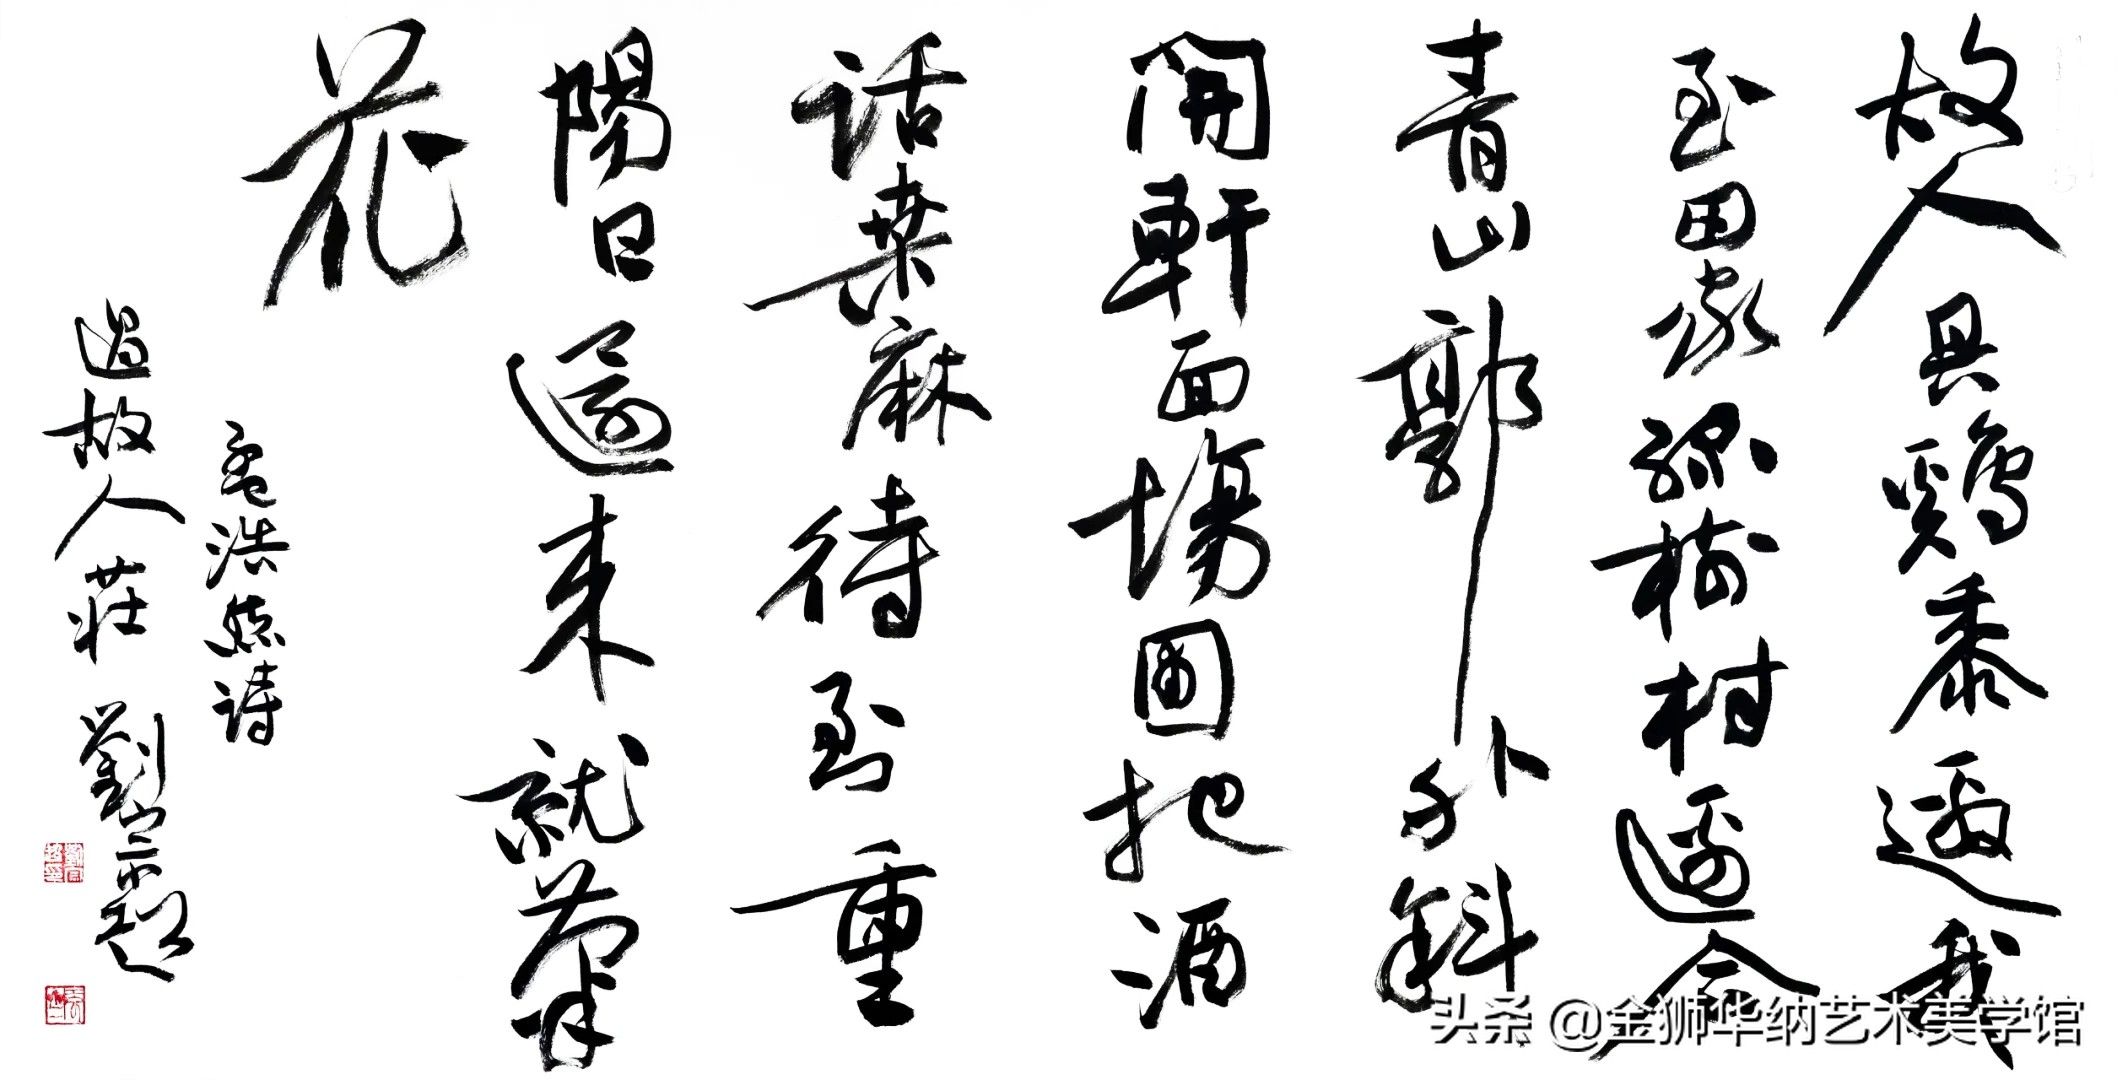 故人具鷄黍邀我
至田家綠樹村邊合
青山郭外斜
開軒面場圃把酒
話桒麻待到重
陽日還来就菊
花
孟浩然詩
過故人莊 劉宗超
劉宗超印
头条 @金狮华纳艺术美学馆